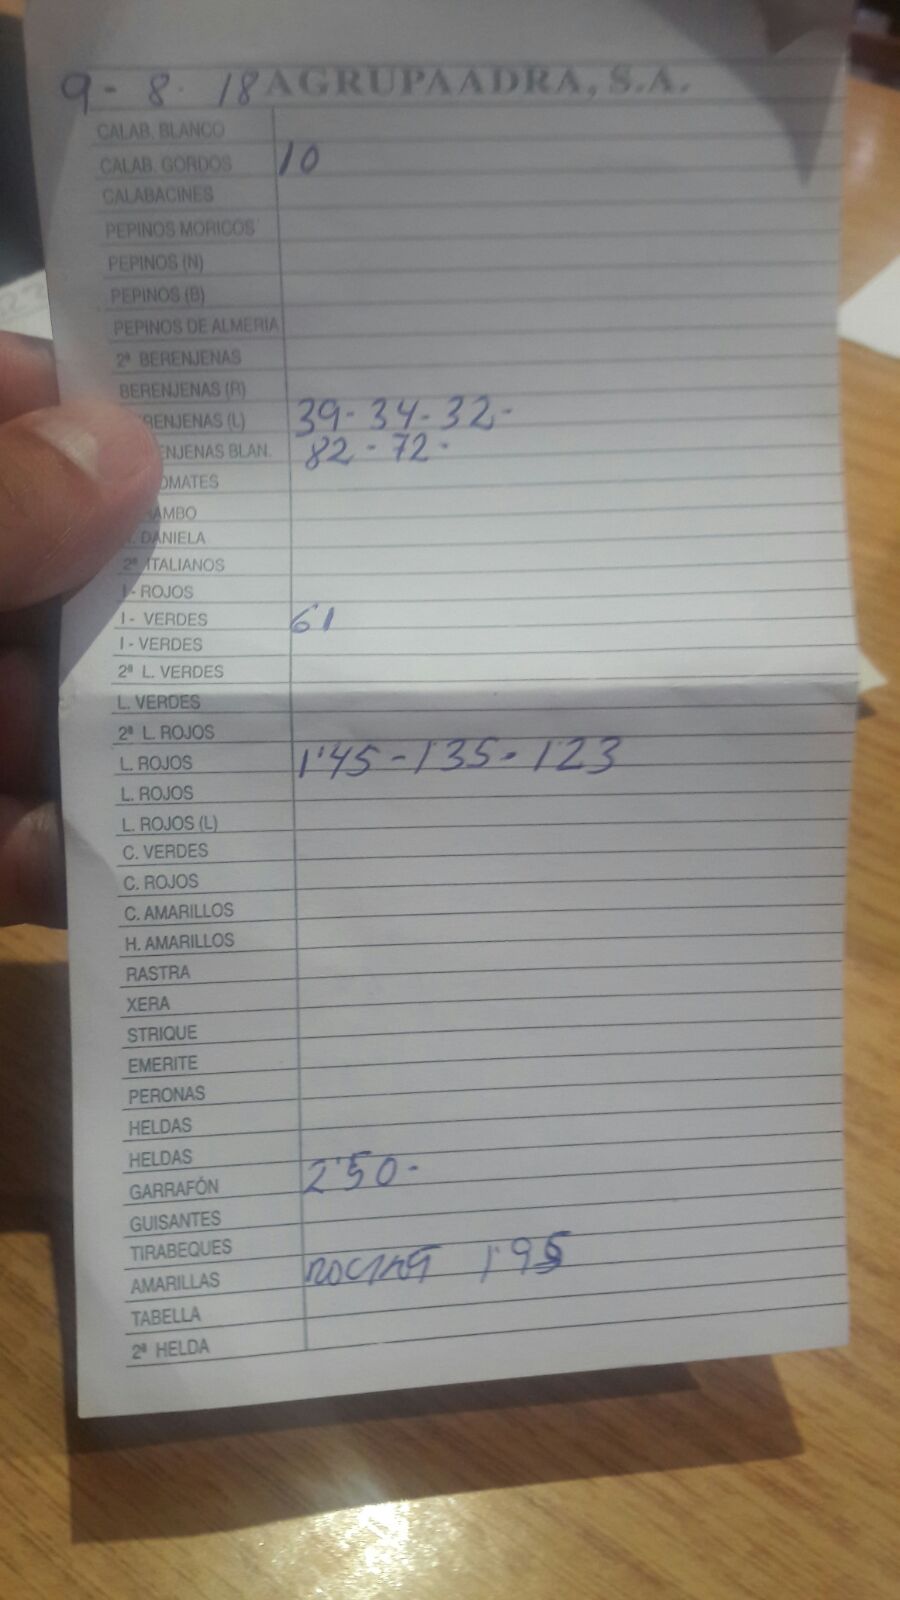 9-8.18 AGRUPAADRA, S.A.
CALAB. BLANCO
CALAB. GORDOS 10
CALABACINES
PEPINOS MORICOS
PEPINOS (N)
PEPINOS (B)
PEPINOS DE ALMERIA
2ª BERENJENAS
BERENJENAS (R)
RENJENAS (L) 39-34-32-
ENJENAS BLAN. 82-72-
OMATES
AMBO
DANIELA
2ª ITALIANOS
I - ROJOS
I - VERDES 61
I - VERDES
2ª L. VERDES
L. VERDES
2ª L. ROJOS
L. ROJOS 1'45-1'35-123
L. ROJOS
L. ROJOS (L)
C. VERDES
C. ROJOS
C. AMARILLOS
H. AMARILLOS
RASTRA
XERA
STRIQUE
EMERITE
PERONAS
HELDAS
HELDAS
GARRAFÓN 2'50-
GUISANTES
TIRABEQUES
AMARILLAS 1'95
TABELLA
2ª HELDA